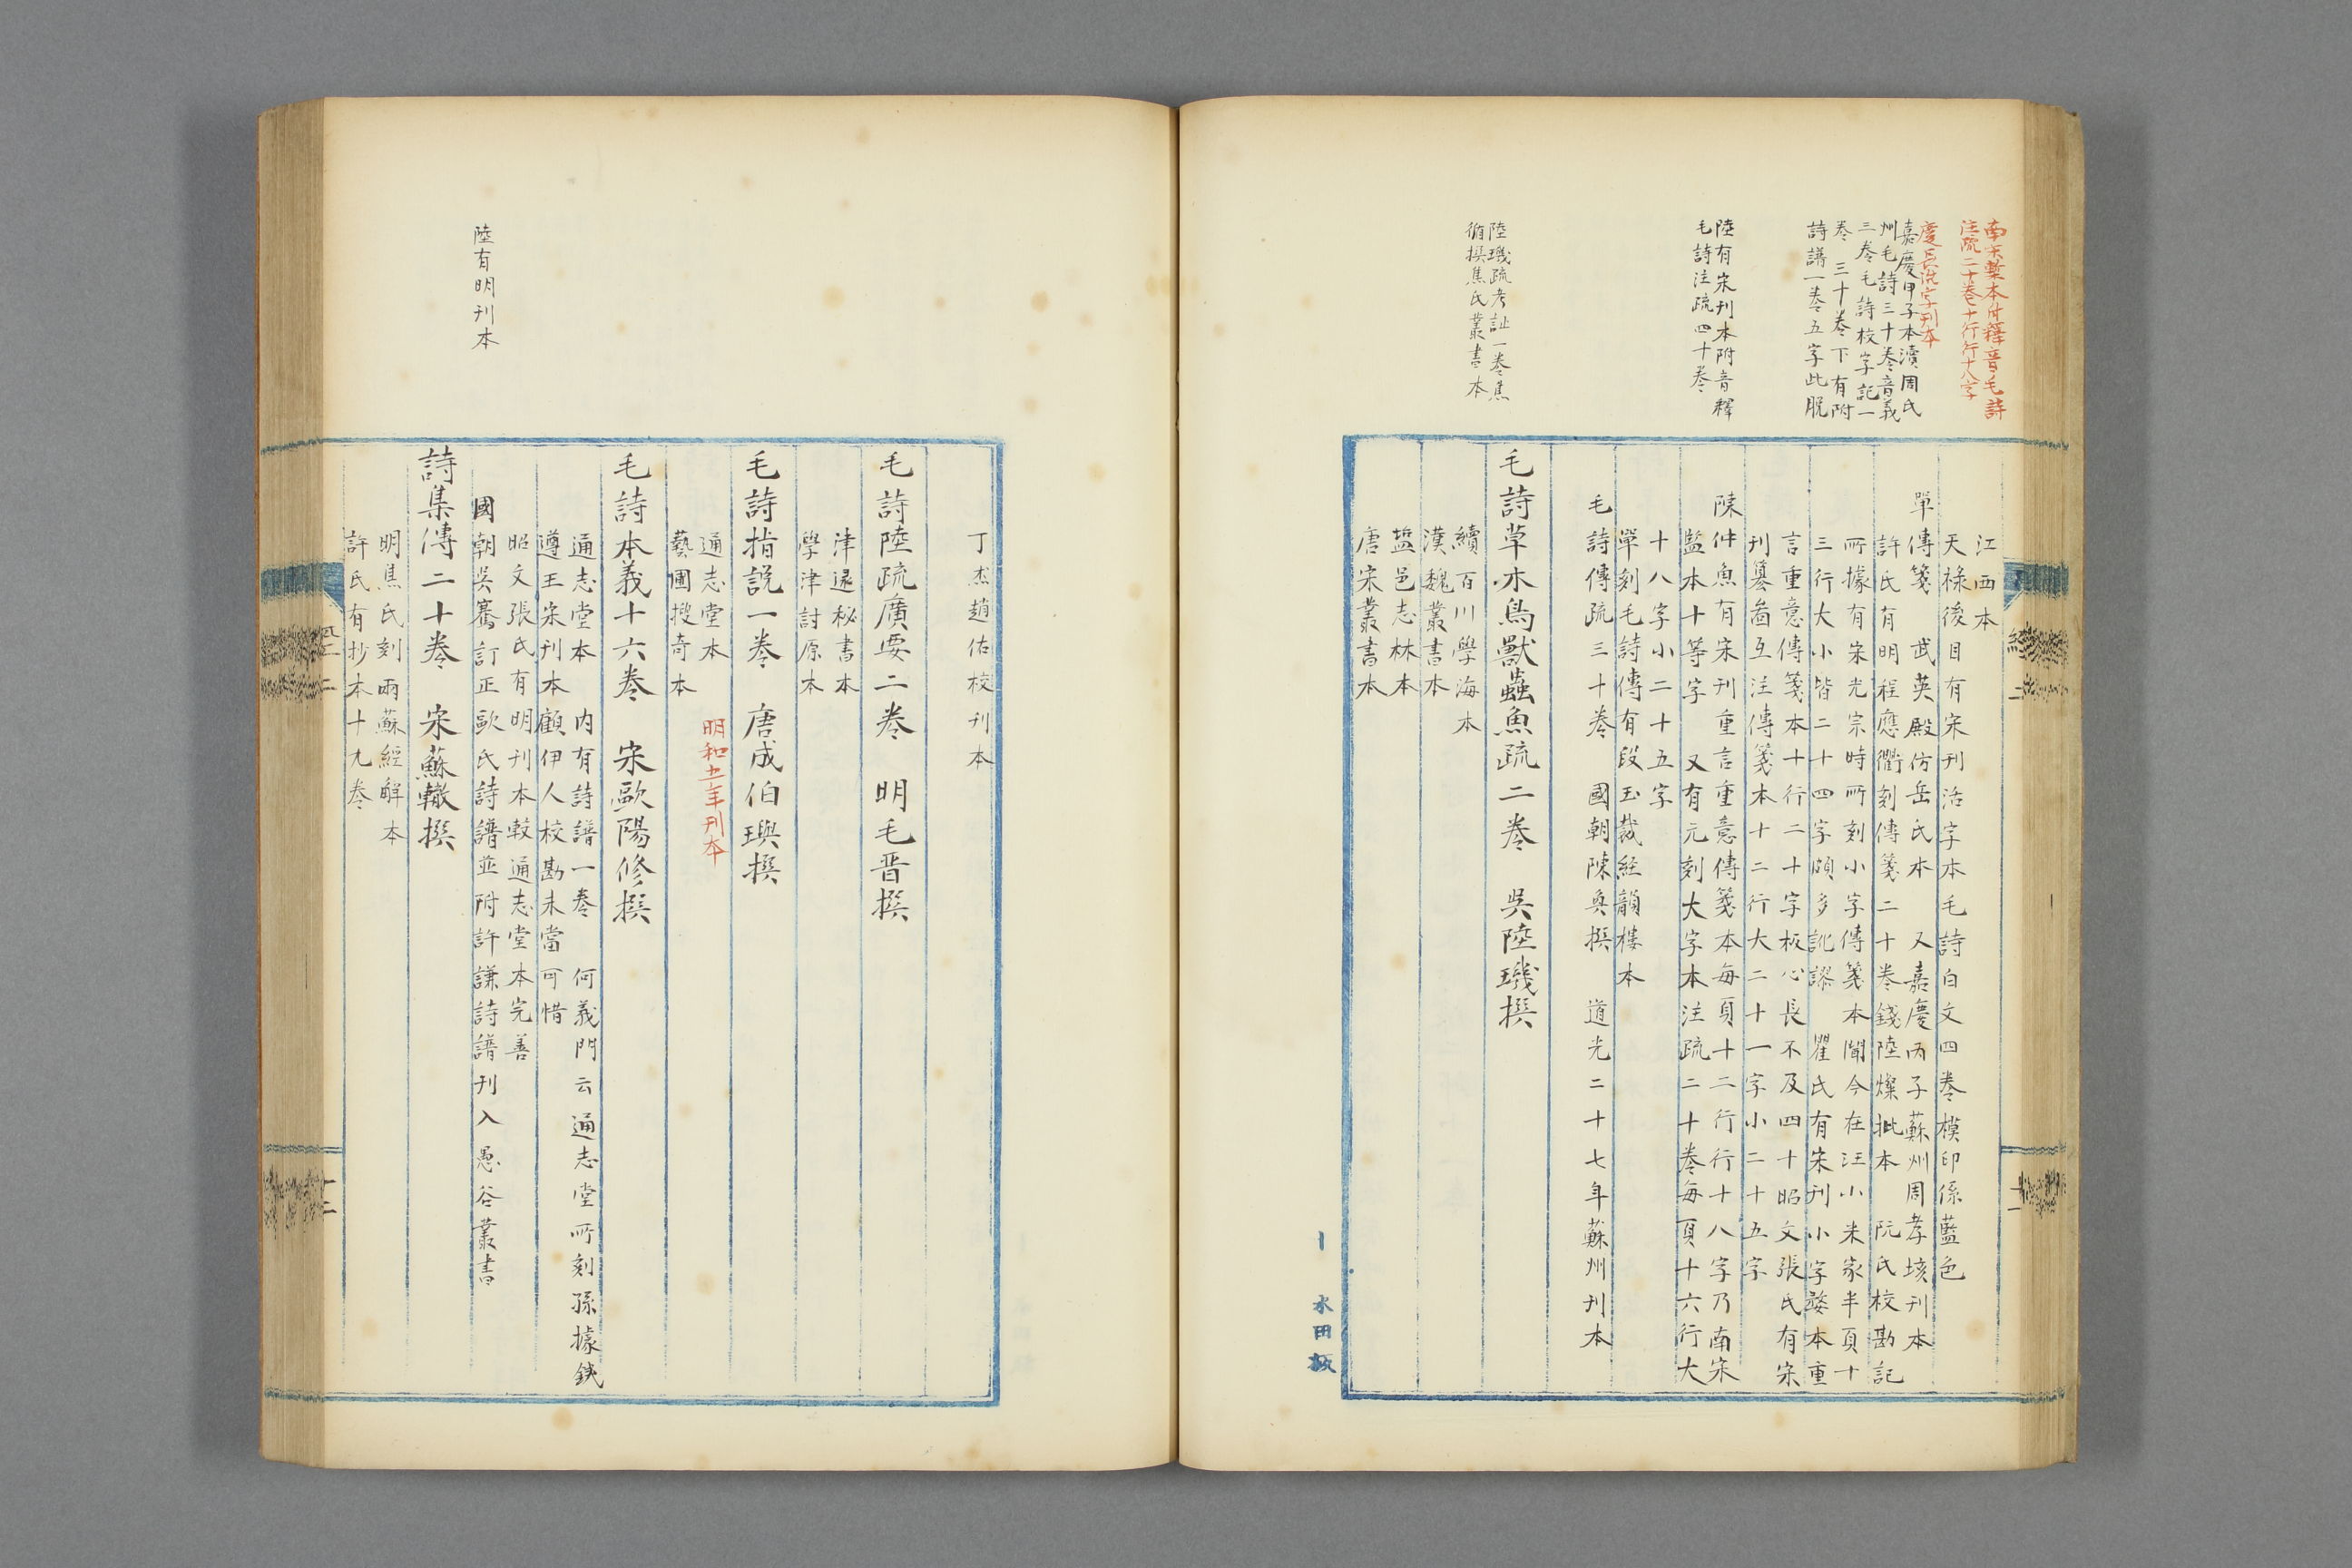 南宋槧本附釋音毛詩
注疏二十卷十行行十八字
慶長活字刊本
嘉慶甲子本瀆周氏
州毛詩三十卷音義
三卷毛詩校字記一
卷 三十卷下有附
詩譜一卷五字此脫
陸有宋刊本附音釋
毛詩注疏四十卷
陸璣疏考証一卷焦
循撰焦氏叢書本
江西本
天祿後目有宋刊活字本毛詩白文四卷模印係藍色
單傳箋 武英殿仿岳氏本 又嘉慶丙子蘇州周孝垓刊本
許氏有明程應衢刻傳箋二十卷錢陸燦批本 阮氏校勘記
所據有宋光宗時所刻小字傳箋本聞今在汪小米家半頁十
三行大小皆二十四字頗多訛謬 瞿氏有宋刊小字婺本重
言重意傳箋本十行二十字板心長不及四十昭文張氏有宋
刊纂啚互注傳箋本十二行大二十一字小二十五字
陳仲魚有宋刊重言重意傳箋本每頁十二行行十八字乃南宋
監本十等字 又有元刻大字本注疏二十卷每頁十六行大
十八字小二十五字
單刻毛詩傳有段玉裁經韻樓本
毛詩傳疏三十卷 國朝陳奐撰 道光二十七年蘇州刊本
毛詩草木鳥獸蟲魚疏二卷 吳陸璣撰
續百川學海本
漢魏叢書本
盬邑志林本
唐宋叢書本
經 二
十一
水田板
陸有明刊本
丁杰趙佑校刊本
毛詩陸疏廣要二卷 明毛晋撰
津逮秘書本
學津討原本
毛詩指說一卷 唐成伯璵撰
通志堂本 明和五年刊本
藝圃搜奇本
毛詩本義十六卷 宋歐陽修撰
通志堂本 内有詩譜一卷 何義門云通志堂所刻孫據錢
遵王宋刊本顧伊人校勘未當可惜
昭文張氏有明刊本較通志堂本完善
國朝吳騫訂正歐氏詩譜並附許謙詩譜刊入愚谷叢書
詩集傳二十卷 宋蘇轍撰
明焦氏刻兩蘇經解本
許氏有抄本十九卷
二
十二